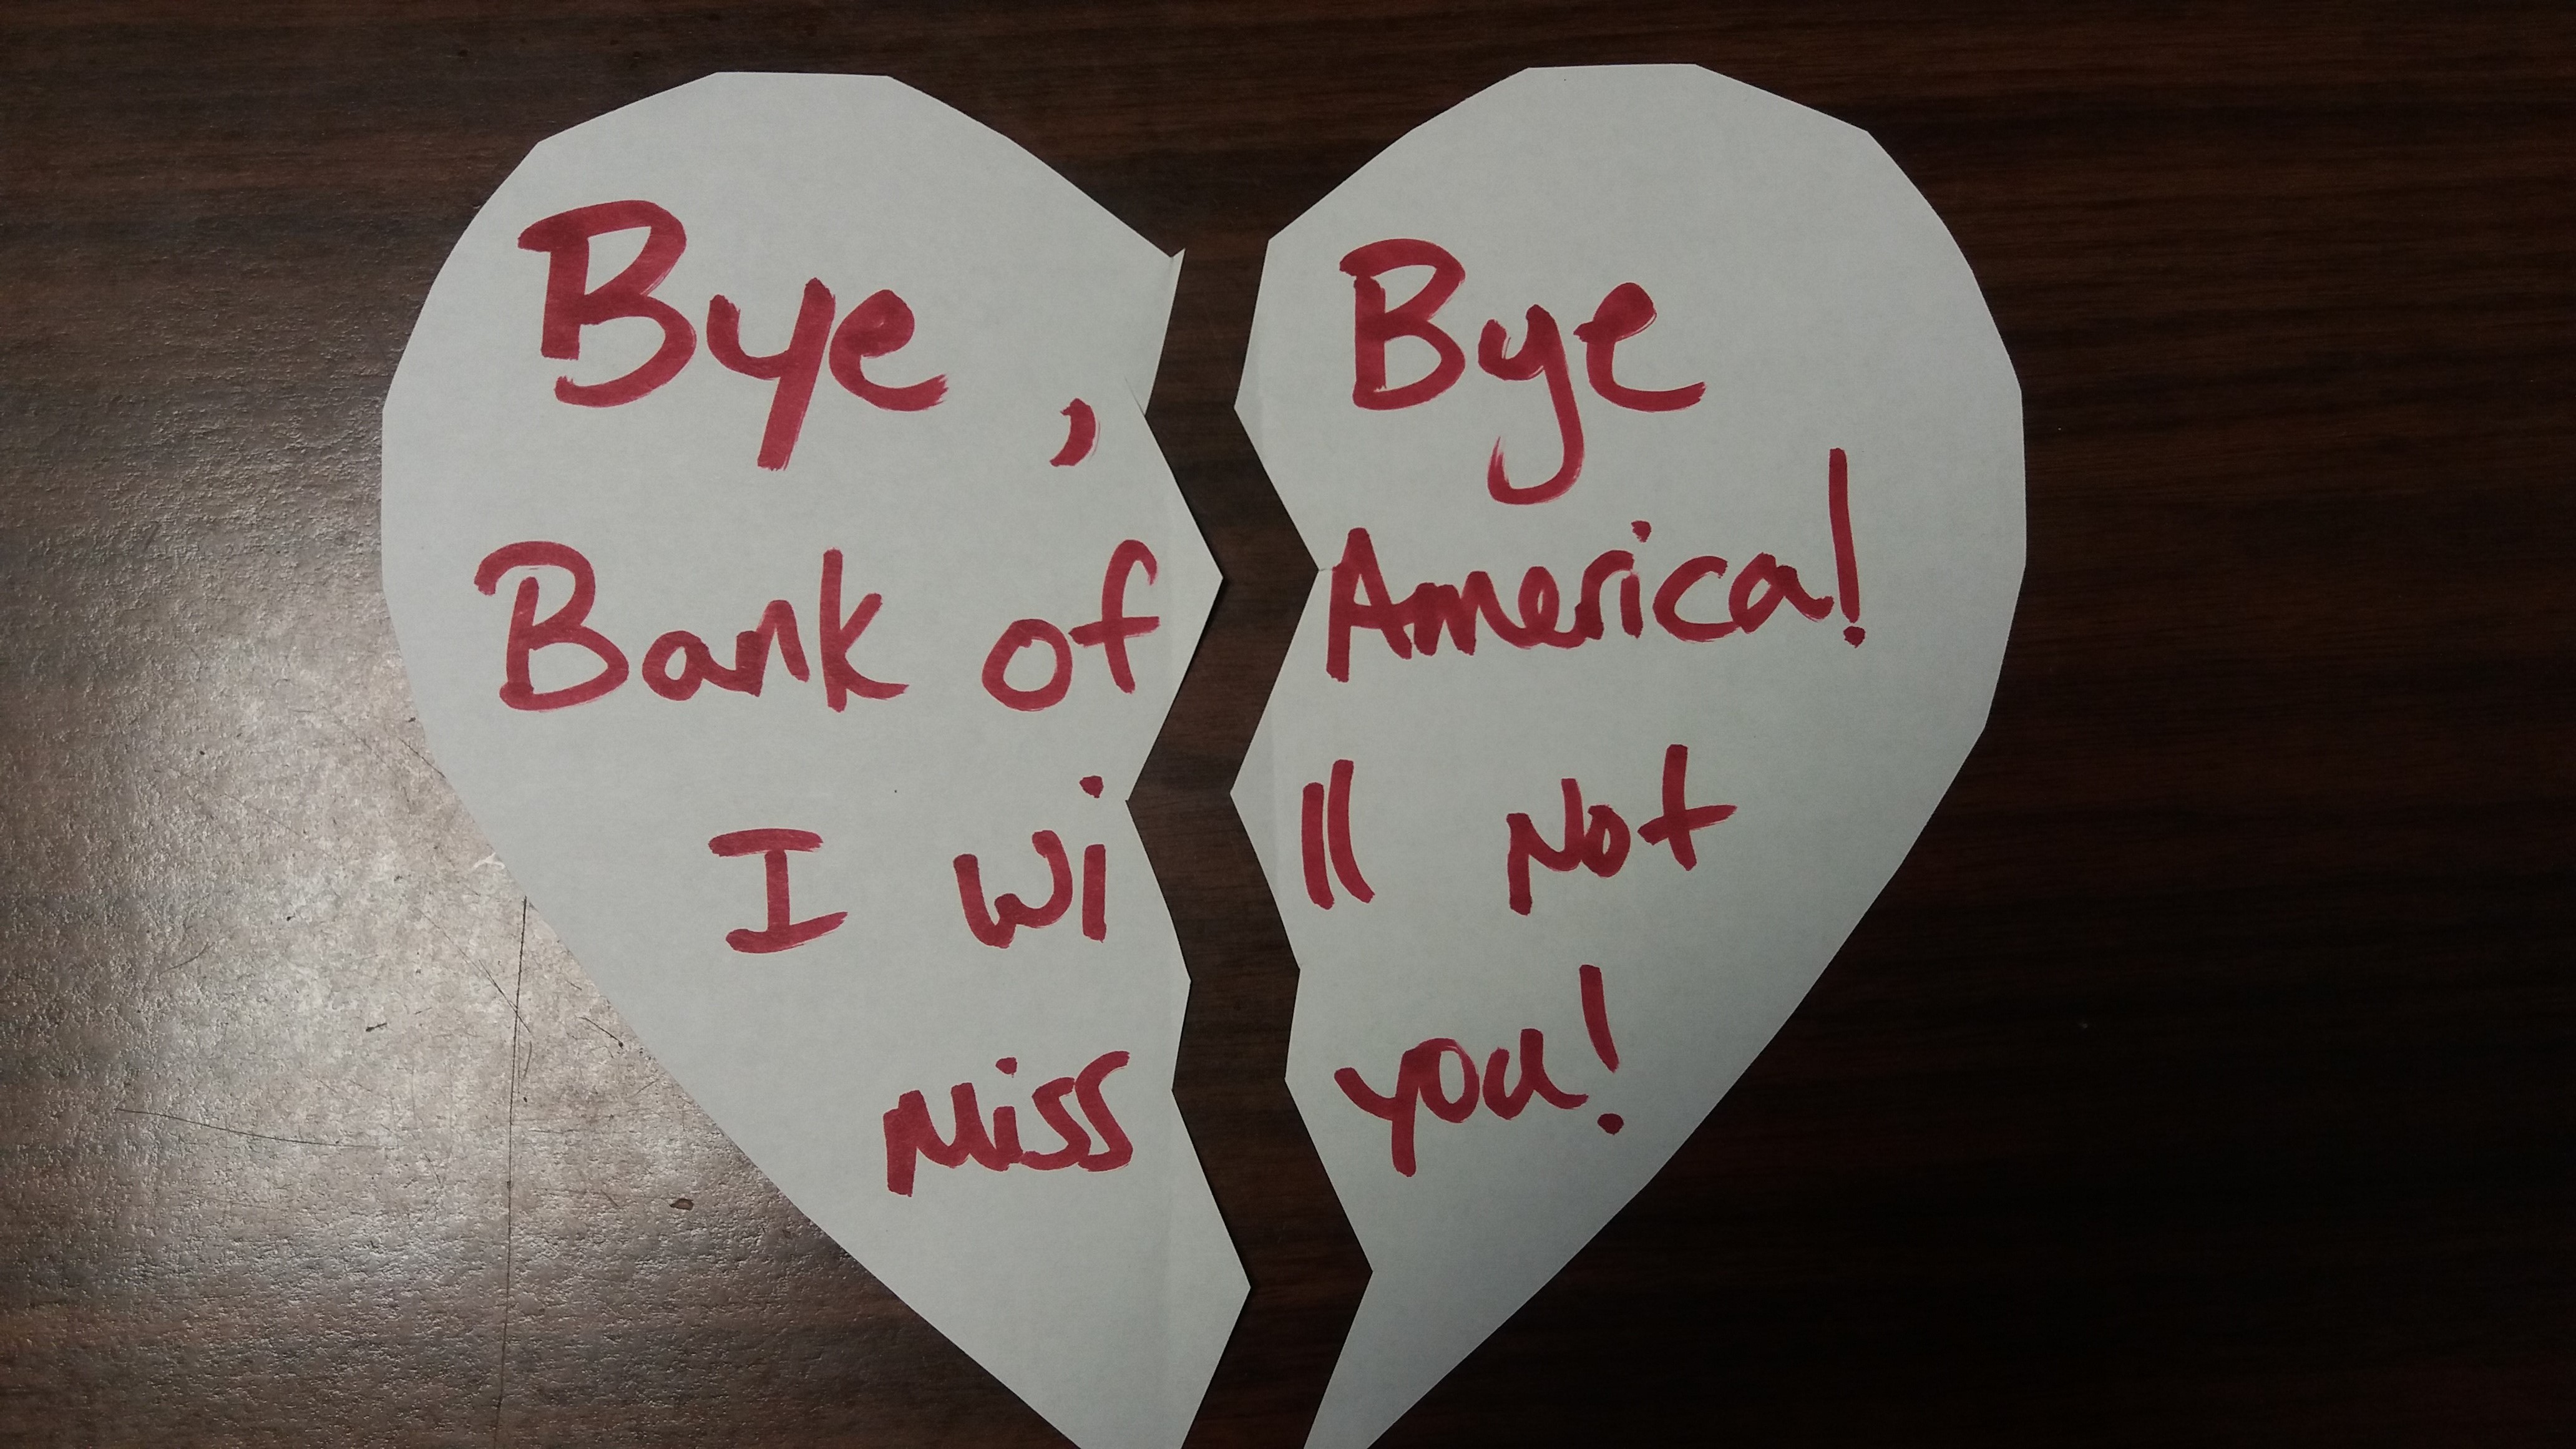 Bye, Bye
Bank of America!
I will Not
Miss you!